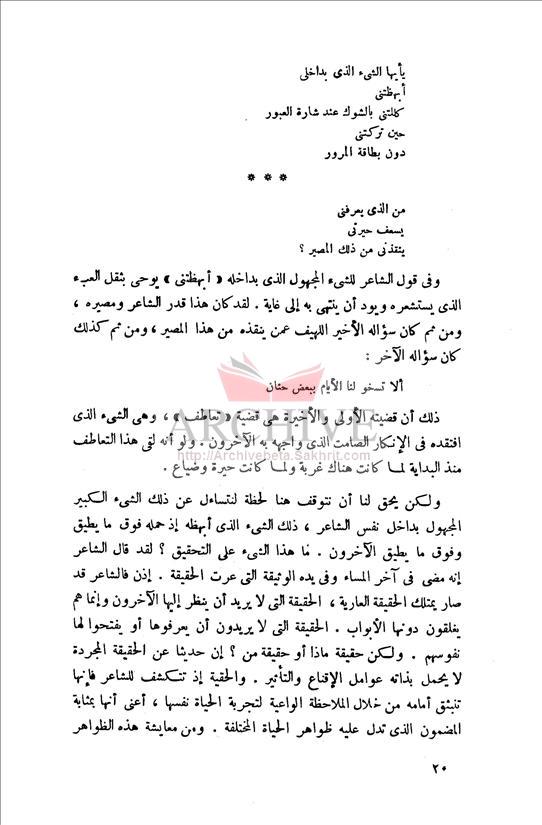 يأيها الشىء الذى بداخلى
أبهظتنى
كللتنى بالشوك عند شارة العبور
حين تركتنى
دون بطاقة المرور
* * *
من الذى يعرفنى
يسعف حيرتى
ينقذنى من ذلك المصير ؟
وفى قول الشاعر للشىء المجهول الذى بداخله « أبهظتنى » يوحى بثقل العبء
الذى يستشعره ويود أن ينتهى به إلى غاية . لقد كان هذا قدر الشاعر ومصيره ،
ومن ثم كان سؤاله الأخير اللهيف عمن ينقذه من هذا المصير ، ومن ثم كذلك
كان سؤاله الآخر :
ألا تسخو لنا الأيام ببعض حنان
ذلك أن قضيته الأولى والأخيرة هى قضية « تعاطف » ، وهى الشىء الذى
افتقده فى الإنكار الصامت الذى واجهه به الآخرون . ولو أنه لقى هذا التعاطف
منذ البداية لما كانت هناك غربة ولما كانت حيرة وضياع .
ARCHIVE
http://Archivebeta.Sakhrit.com
ولكن يحق لنا أن نتوقف هنا لحظة لنتساءل عن ذلك الشىء الكبير
المجهول بداخل نفس الشاعر ، ذلك الشىء الذى أبهظه إذ حمله فوق ما يطيق
وفوق ما يطيق الآخرون . مَا هذا الشىء على التحقيق ؟ لقد قال الشاعر
إنه مضى فى آخر المساء وفى يده الوثيقة التى عرت الحقيقة . إذن فالشاعر قد
صار يمتلك الحقيقة العارية ، الحقيقة التى لا يريد أن ينظر إليها الآخرون وإنما هم
يغلقون دونها الأبواب . الحقيقة التى لا يريدون أن يعرفوها أو يفتحوا لها
نفوسهم . ولكن حقيقة ماذا أو حقيقة من ؟ إن حديثا عن الحقيقة المجردة
لا يحمل بذاته عوامل الإقناع والتأثير . والحقية إذ تتكشف للشاعر فإنها
تنبثق أمامه من خلال الملاحظة الواعية لتجربة الحياة نفسها ، أعنى أنها بمثابة
المضمون الذى تدل عليه ظواهر الحياة المختلفة . ومن معايشة هذه الظواهر
٢٠